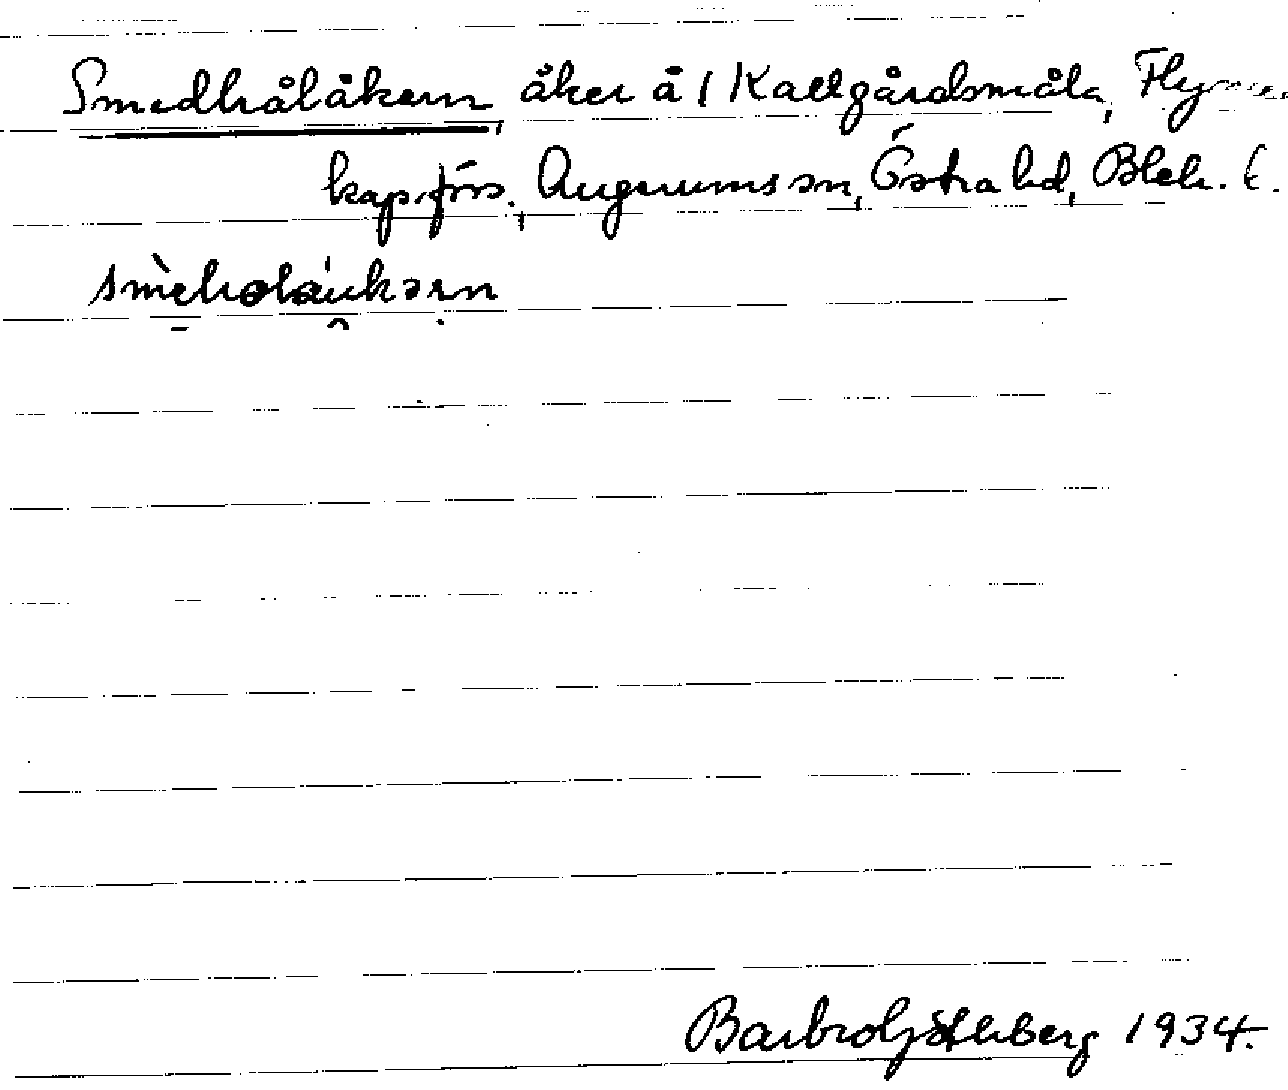 Smedhålåkern, åker å 1 Kallgårdsmåla, Flymen
kap.förs., Augerums sn, Östra hd, Blek. l.
Barbro Götherberg 1934.